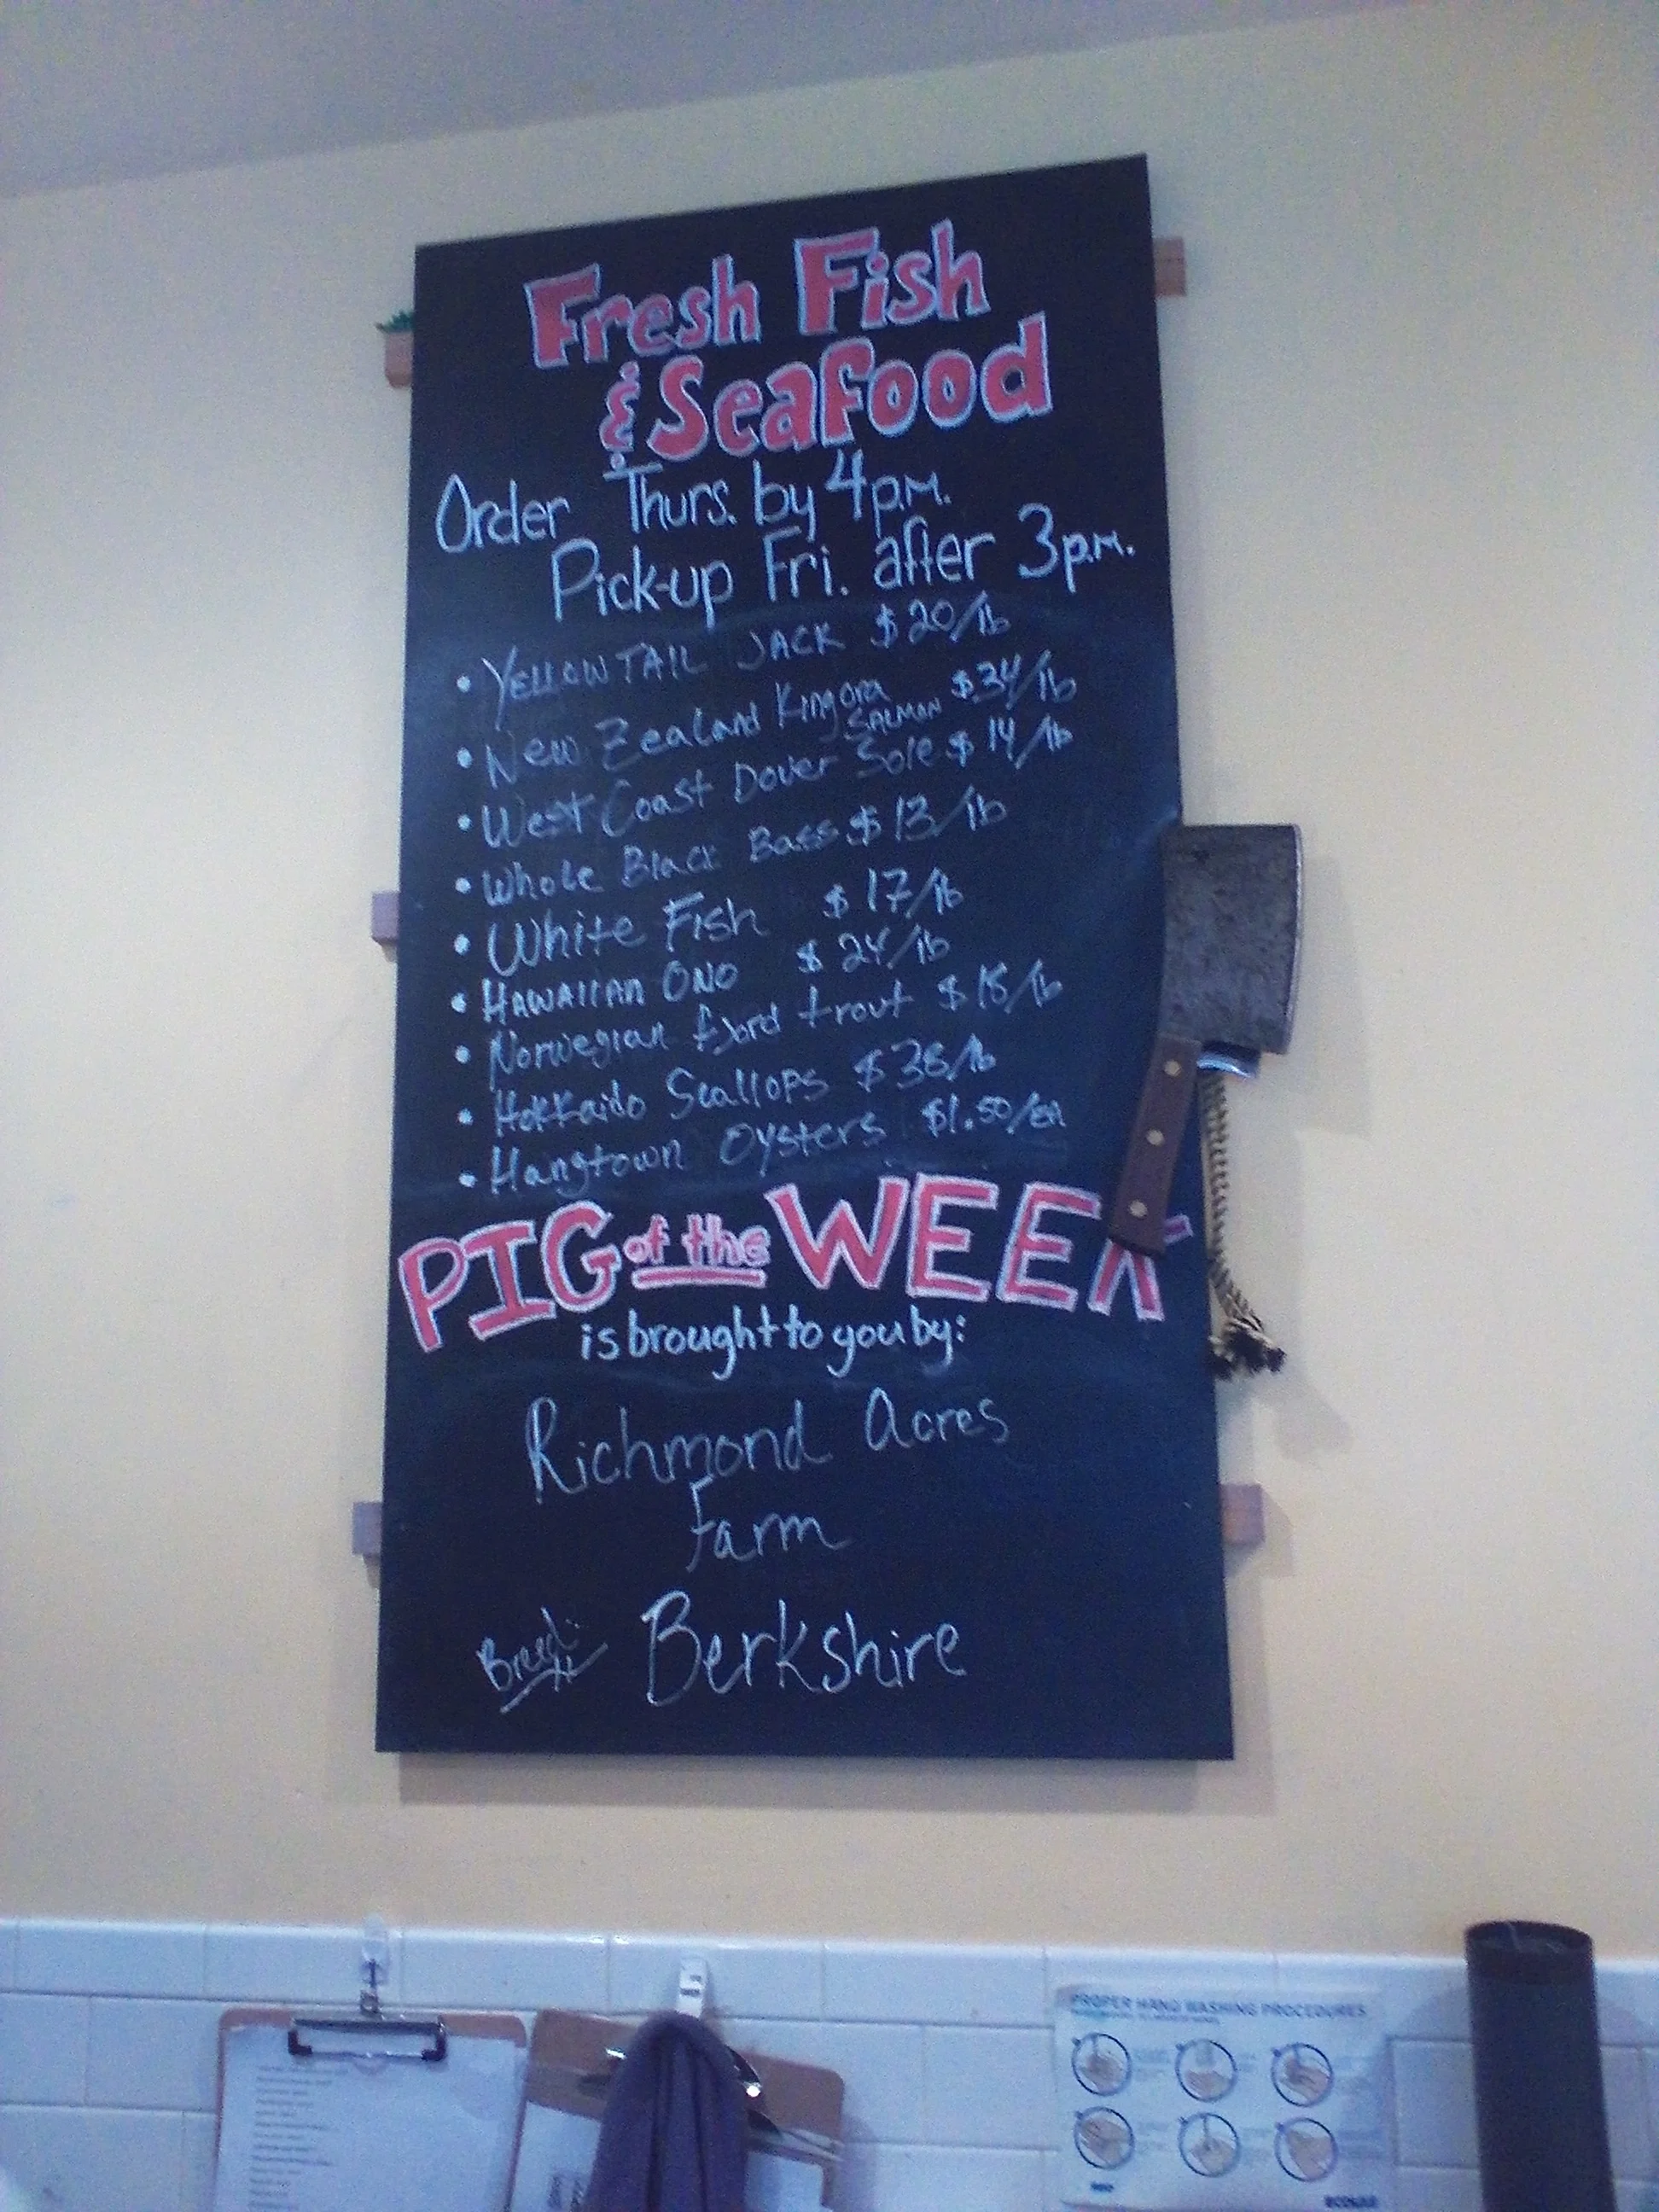 Fresh Fish
& Seafood
Order Thurs. by 4p.m.
Pick-up Fri. after 3p.m.
• YELLOWTAIL JACK $20/lb
• New Zealand King ora SALMON $34/lb
• West Coast Dover Sole $14/lb
• Whole Black Bass $13/lb
• White Fish $17/lb
• HAWAIIAN ONO $24/lb
• Norwegian fjord trout $18/lb
• Hokkaido Scallops $38/lb
• Hangtown Oysters $1.50/ea
PIG of the WEEK
is brought to you by:
Richmond Acres
Farm
Breed: Berkshire
PROPER HAND WASHING PROCEDURES
ECOLAB